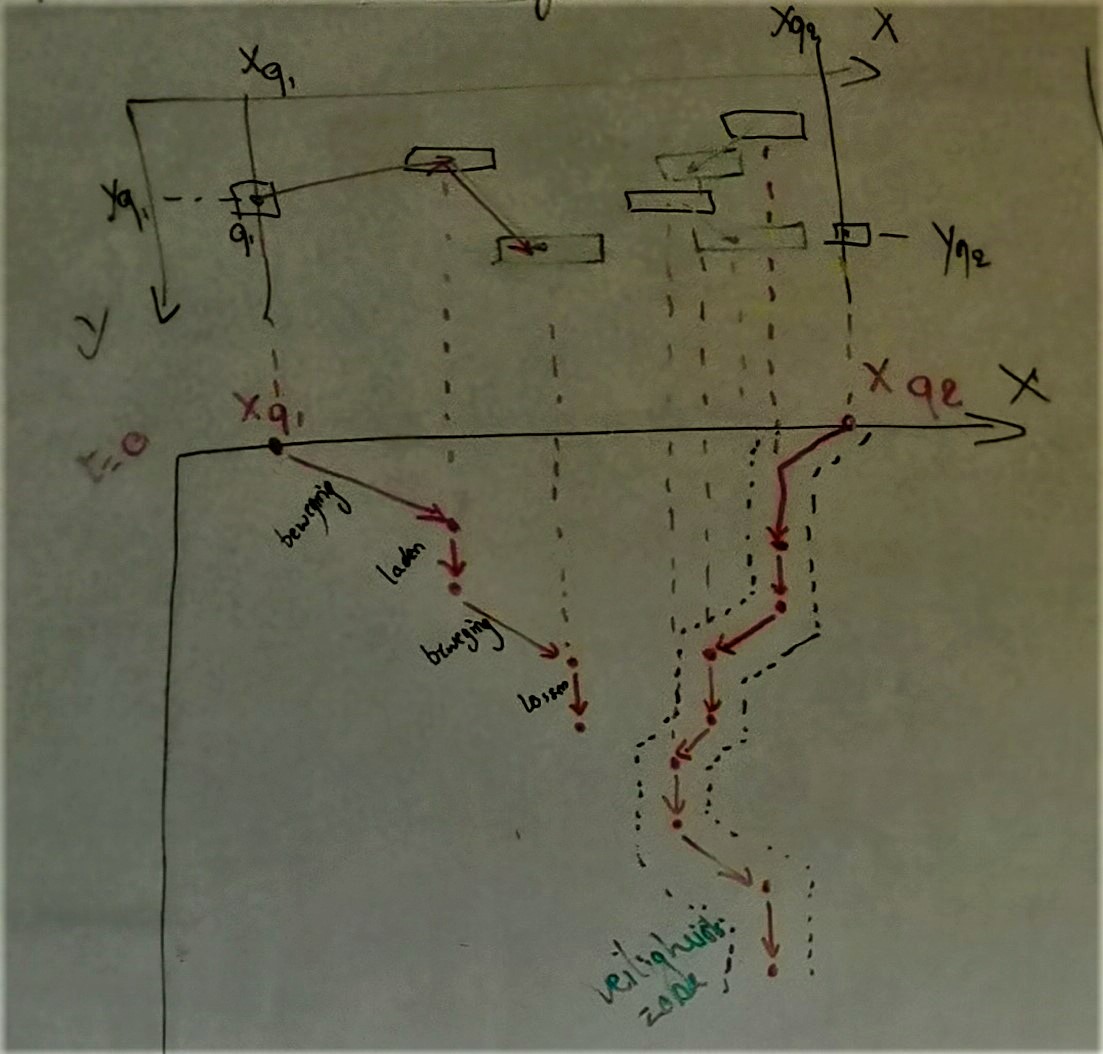 Xq₁
Xq₂
X
Yq₁
q₁
Yq₂
Y
Xq₁
Xq2
X
t=0
beweging
laden
beweging
lossen
veiligheids
zone